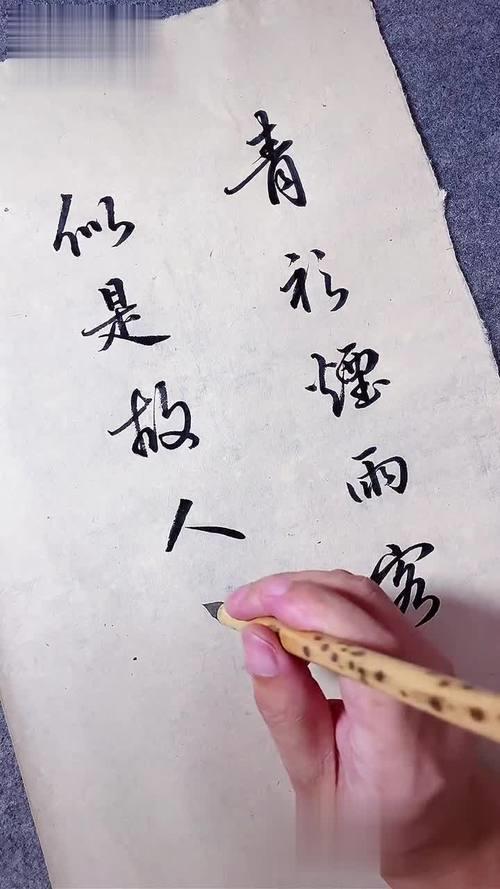 青衫煙雨客
似是故人